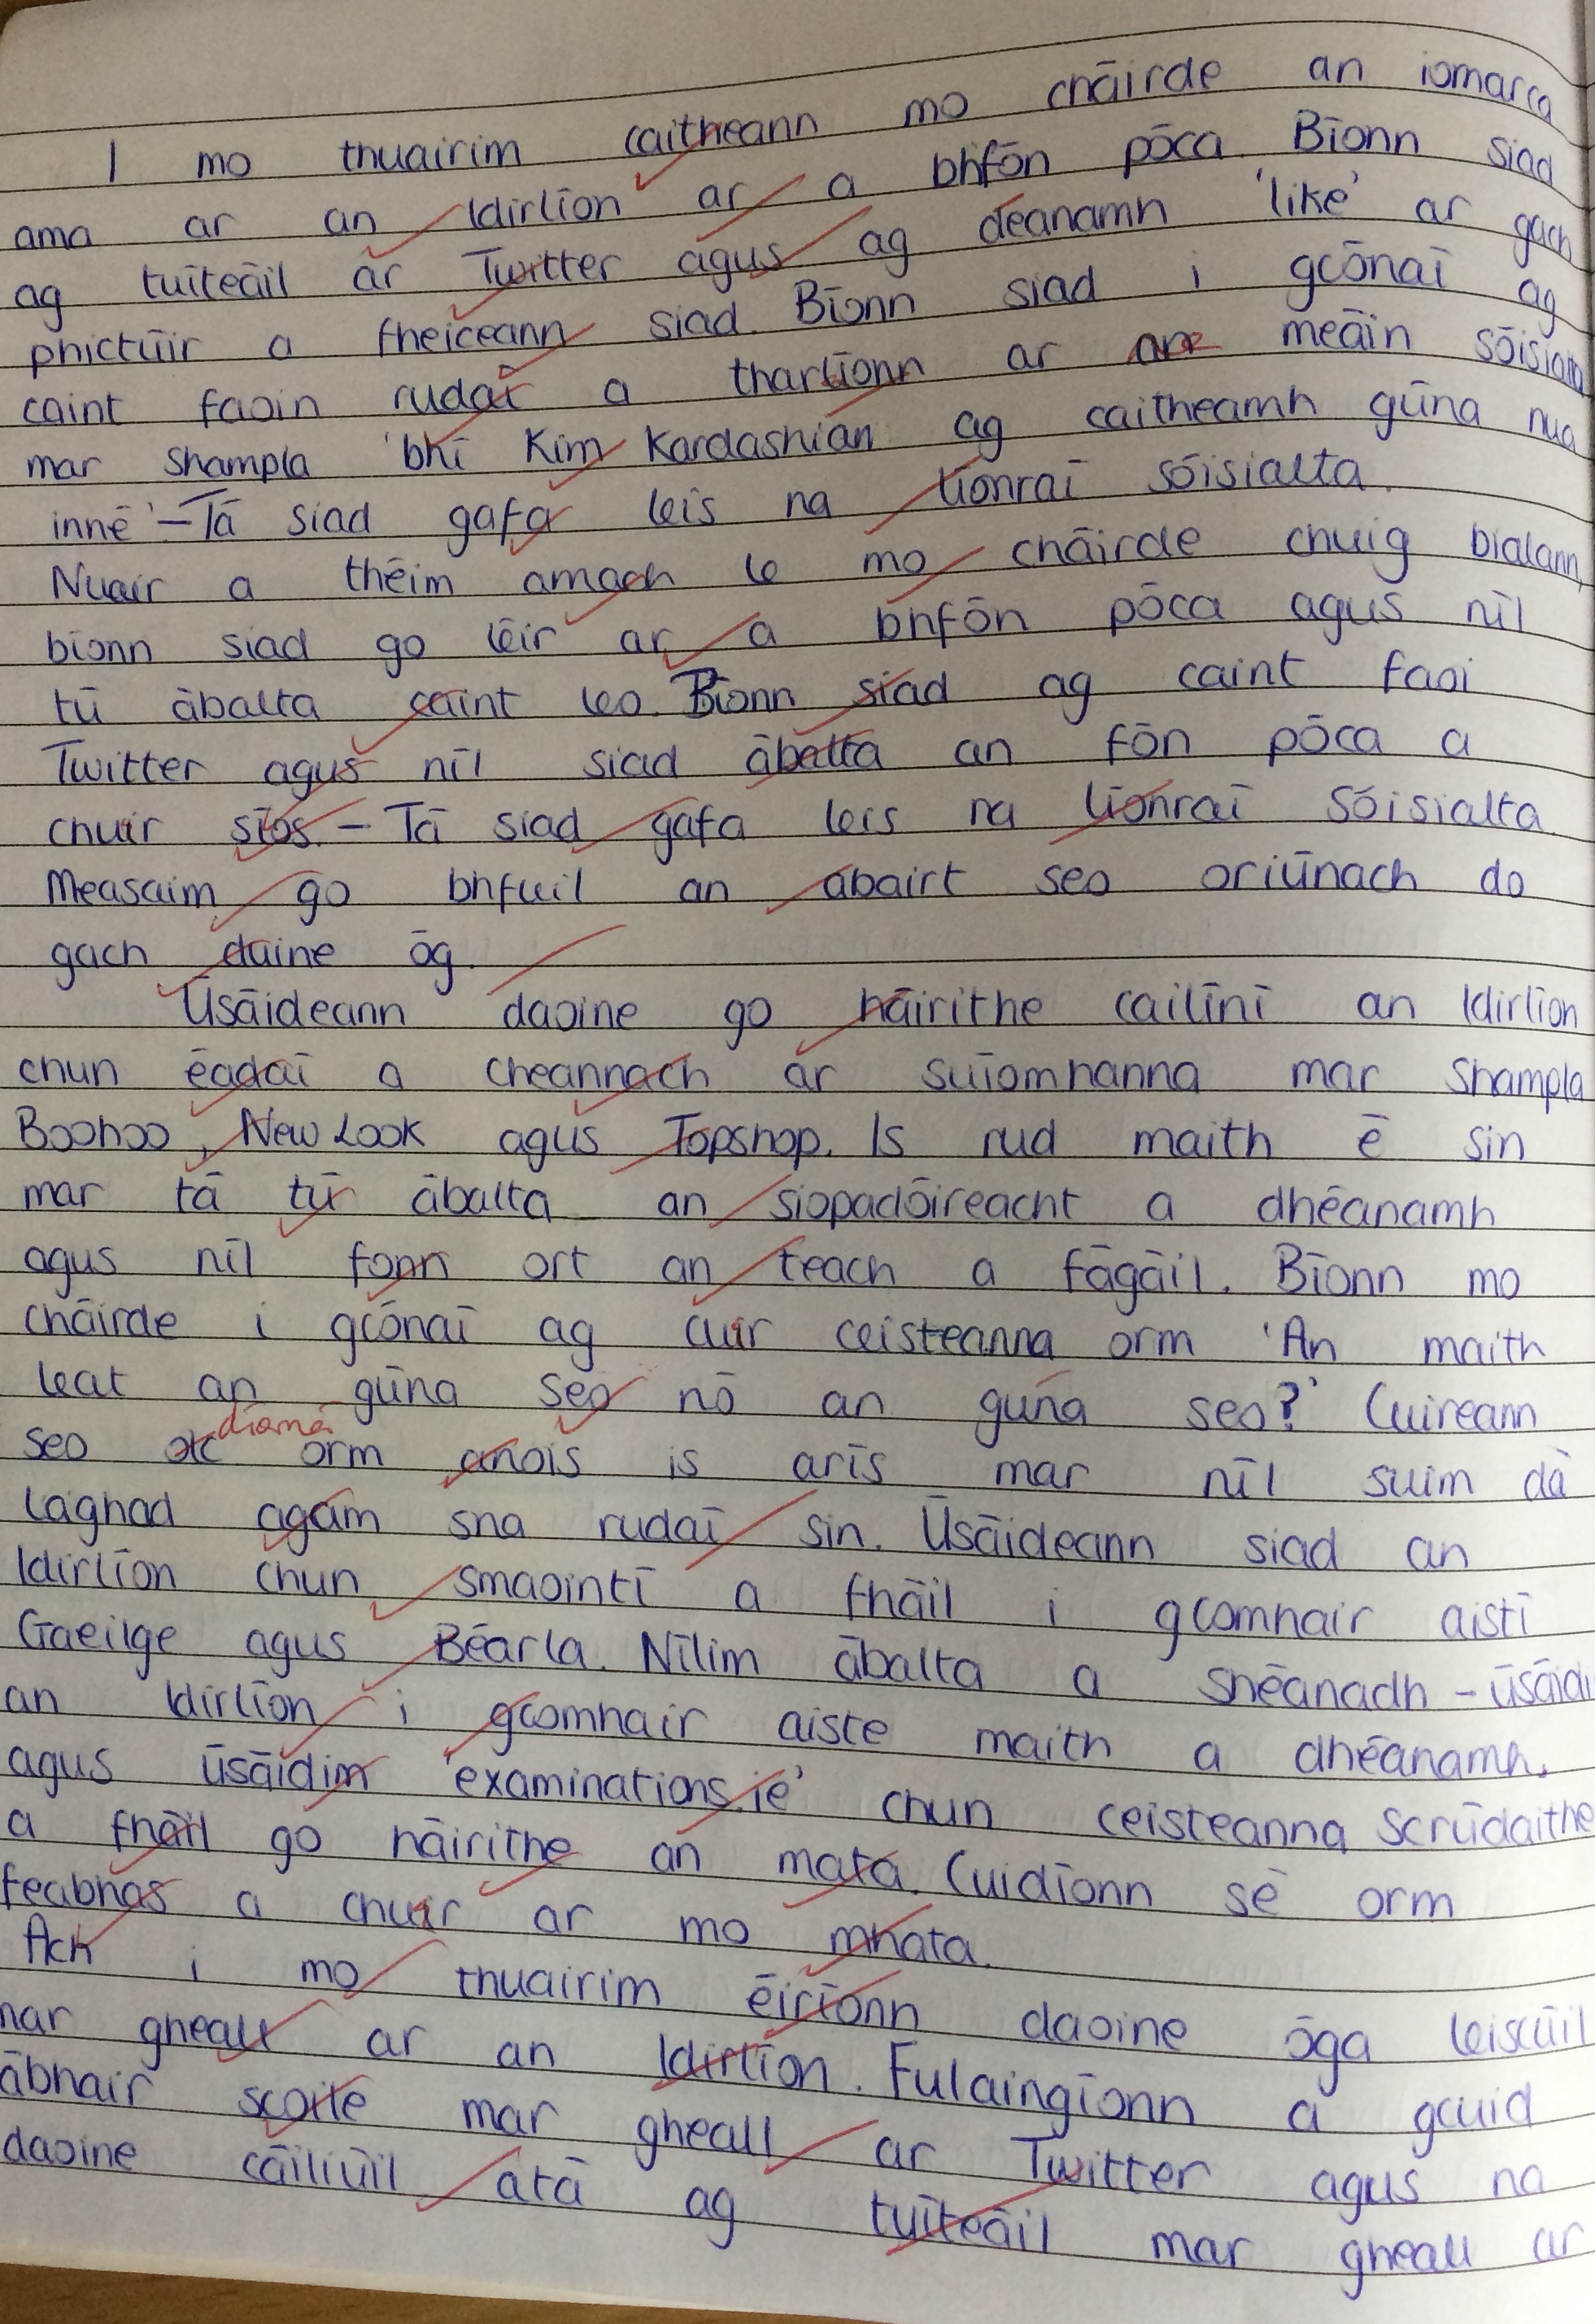 I mo thuairim caitheann mo chāirde an iomarca
ama ar an Idirlīon ar a bhfōn pōca. Bīonn siad
ag tuīteāil ar Twitter agus ag dēanamh 'like' ar gach
phictūir a fheiceann siad. Bīonn siad i gcōnaī ag
caint faoin rudaī a tharlīonn ar meāin sōisialta
mar shampla 'bhī Kim Kardashian ag caitheamh gūna nua
innē' – Tā siad gafa leis na līonraī sōisialta.
Nuair a thēim amach le mo chāirde chuig bialann,
bīonn siad go lēir ar a bhfōn pōca agus nīl
tū ābalta caint leo. Bīonn siad ag caint faoi
Twitter agus nīl siad ābalta an fōn pōca a
chuir sīos – Tā siad gafa leis na līonraī sōisialta
Measaim go bhfuil an abairt seo oriūnach do
gach duine ōg.
Ūsāideann daoine go hāirithe cailīnī an Idirlīon
chun ēadaī a cheannach ar suīomhanna mar shampla
Boohoo, New Look agus Topshop. Is rud maith ē sin
mar tā tū ābalta an siopadōireacht a dhēanamh
agus nīl fonn ort an teach a fāgāil. Bīonn mo
chāirde i gcōnaī ag cuir ceisteanna orm 'An maith
leat an gūna seo nō an guna seo?' Cuireann
seo díomá orm anois is arīs mar nīl suim dā
laghad agam sna rudaī sin. Ūsāideann siad an
Idirlīon chun smaointī a fhāil i gcomhair aistī
Gaeilge agus Bēarla. Nīlim ābalta a shēanadh – ūsāidim
an Idirlīon i gcomhair aiste maith a dhēanamh.
agus ūsāidim 'examinations.ie' chun ceisteanna scrūdaithe
a fhāil go hāirithe an mata. Cuidīonn sē orm
feabhas a chuir ar mo mhata.
Ach i mo thuairim ēirīonn daoine ōga leisciūil
mar gheall ar an Idirlīon. Fulaingīonn a gcuid
ābhair scoile mar gheall ar Twitter agus na
daoine cāiliūil atā ag tuīteāil mar gheall ar